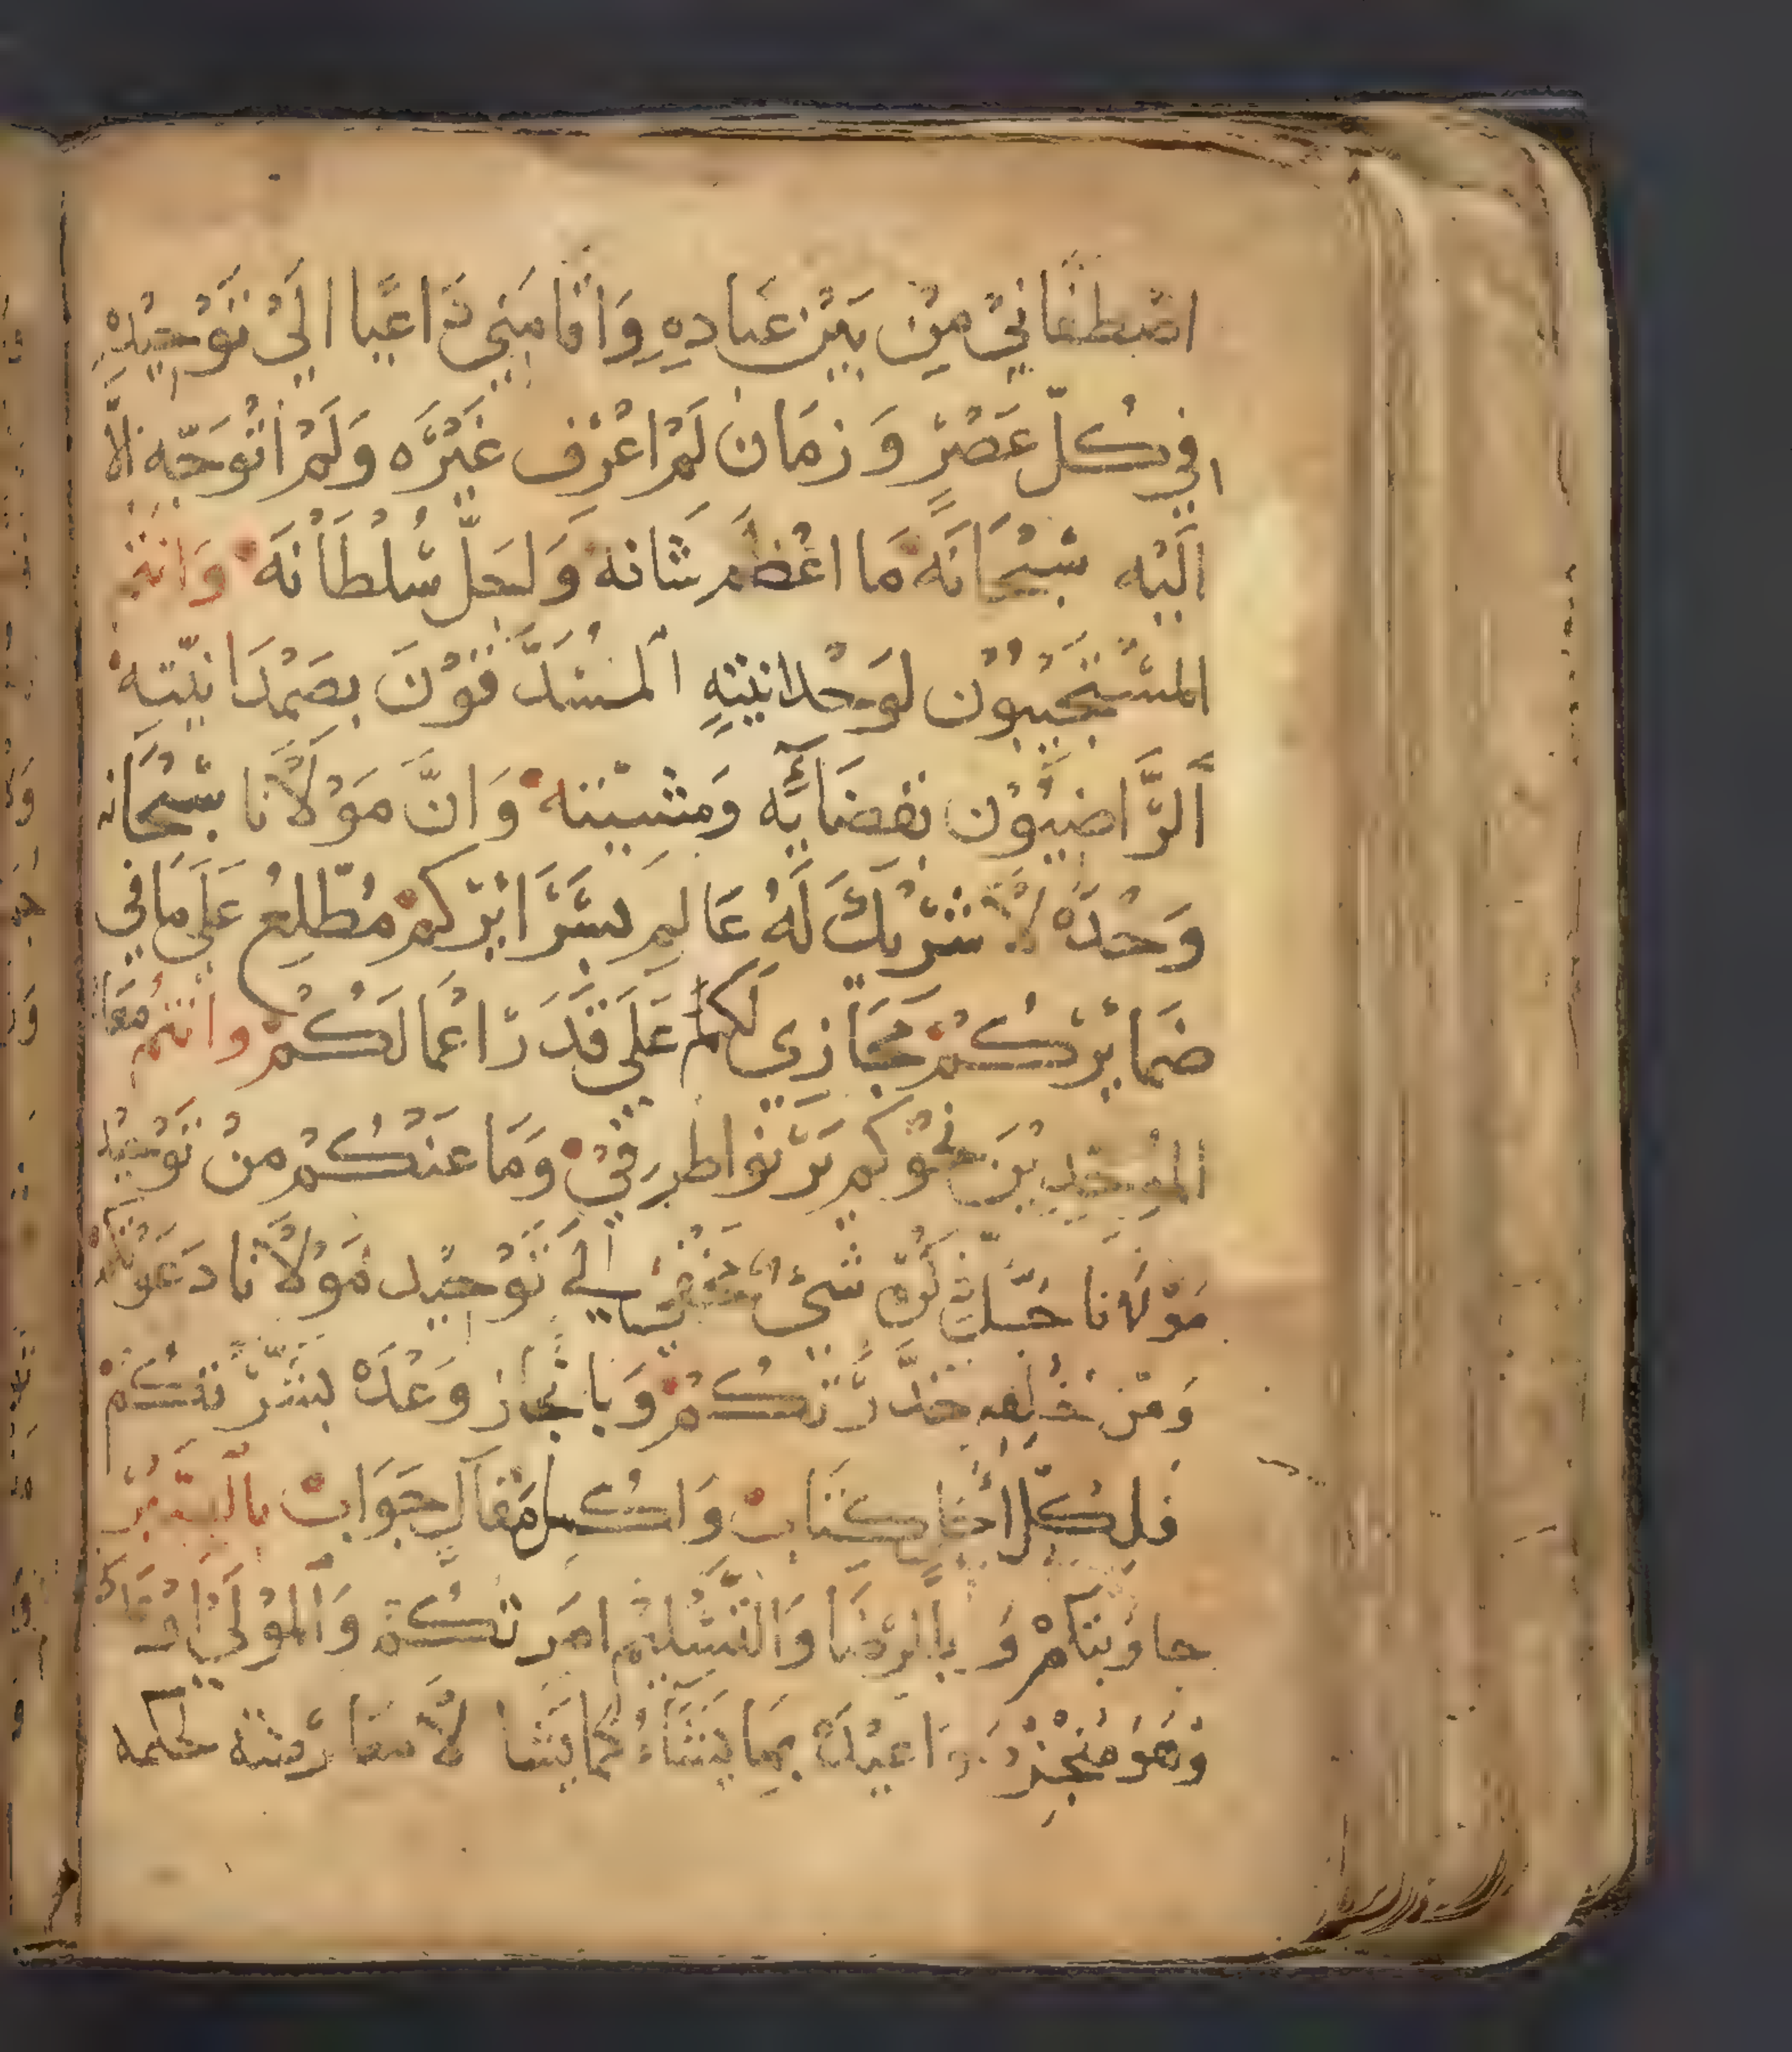 اصْطفَانِيْ مِنْ بَيْن عبَادهِ وَاقَامَنِي دَاعيًا الَيْ تَوْحِيْدِهِ
في كُلّ عَصْرٍ وَزمَان لَمْ اعْرَف غَيْرَه وَلَمْ اتْوَجّه الَّا
الَيْه سُبْحَانَه مَا اعْظَم شَانه وَاجَل سُلْطَانَه وَانتم
المسْتَجيْبوْن لوَحْدانيّتهِ المُسَدَّقوْنَ بصَمْدَانيّته
الرَّاضيوْن بقضَايَه ومَشيْئته وَانَّ مَوْلَانا سُبْحَانه
وَحْدَهُ لَا شَرْيكَ لَهُ عَالِم بسَرَايْركم مُطّلِعُ عَلَى مَا في
ضمَايْركُمْ مجَازي لَكم عَلَي قَدَر اعْمَالَكُمْ وانتم مَعَا
نَحْوكم وَمَا عَنْكُمْ منْ تَوْحيْد
مَوْلَانا شيْ الَي تَوْحِيْد مَوْلَانا دَعَوْتكم
وَمن خَلفه حَذَّرْتكُمْ وَبانجَاز وَعْدَه بَشَّرْتكُمْ
فَلكُلّ اجَل كتَاب وَلكُل مَقَال جَوَاب
جاوَبتكمْ وَبالرّضَا وَالتَّسْليْم امَرتكُمْ وَالمَوْلَي
وَهَوَ مُنْجِز بمَا يَشَآءُ كمَا يَشَا لَا حكمه